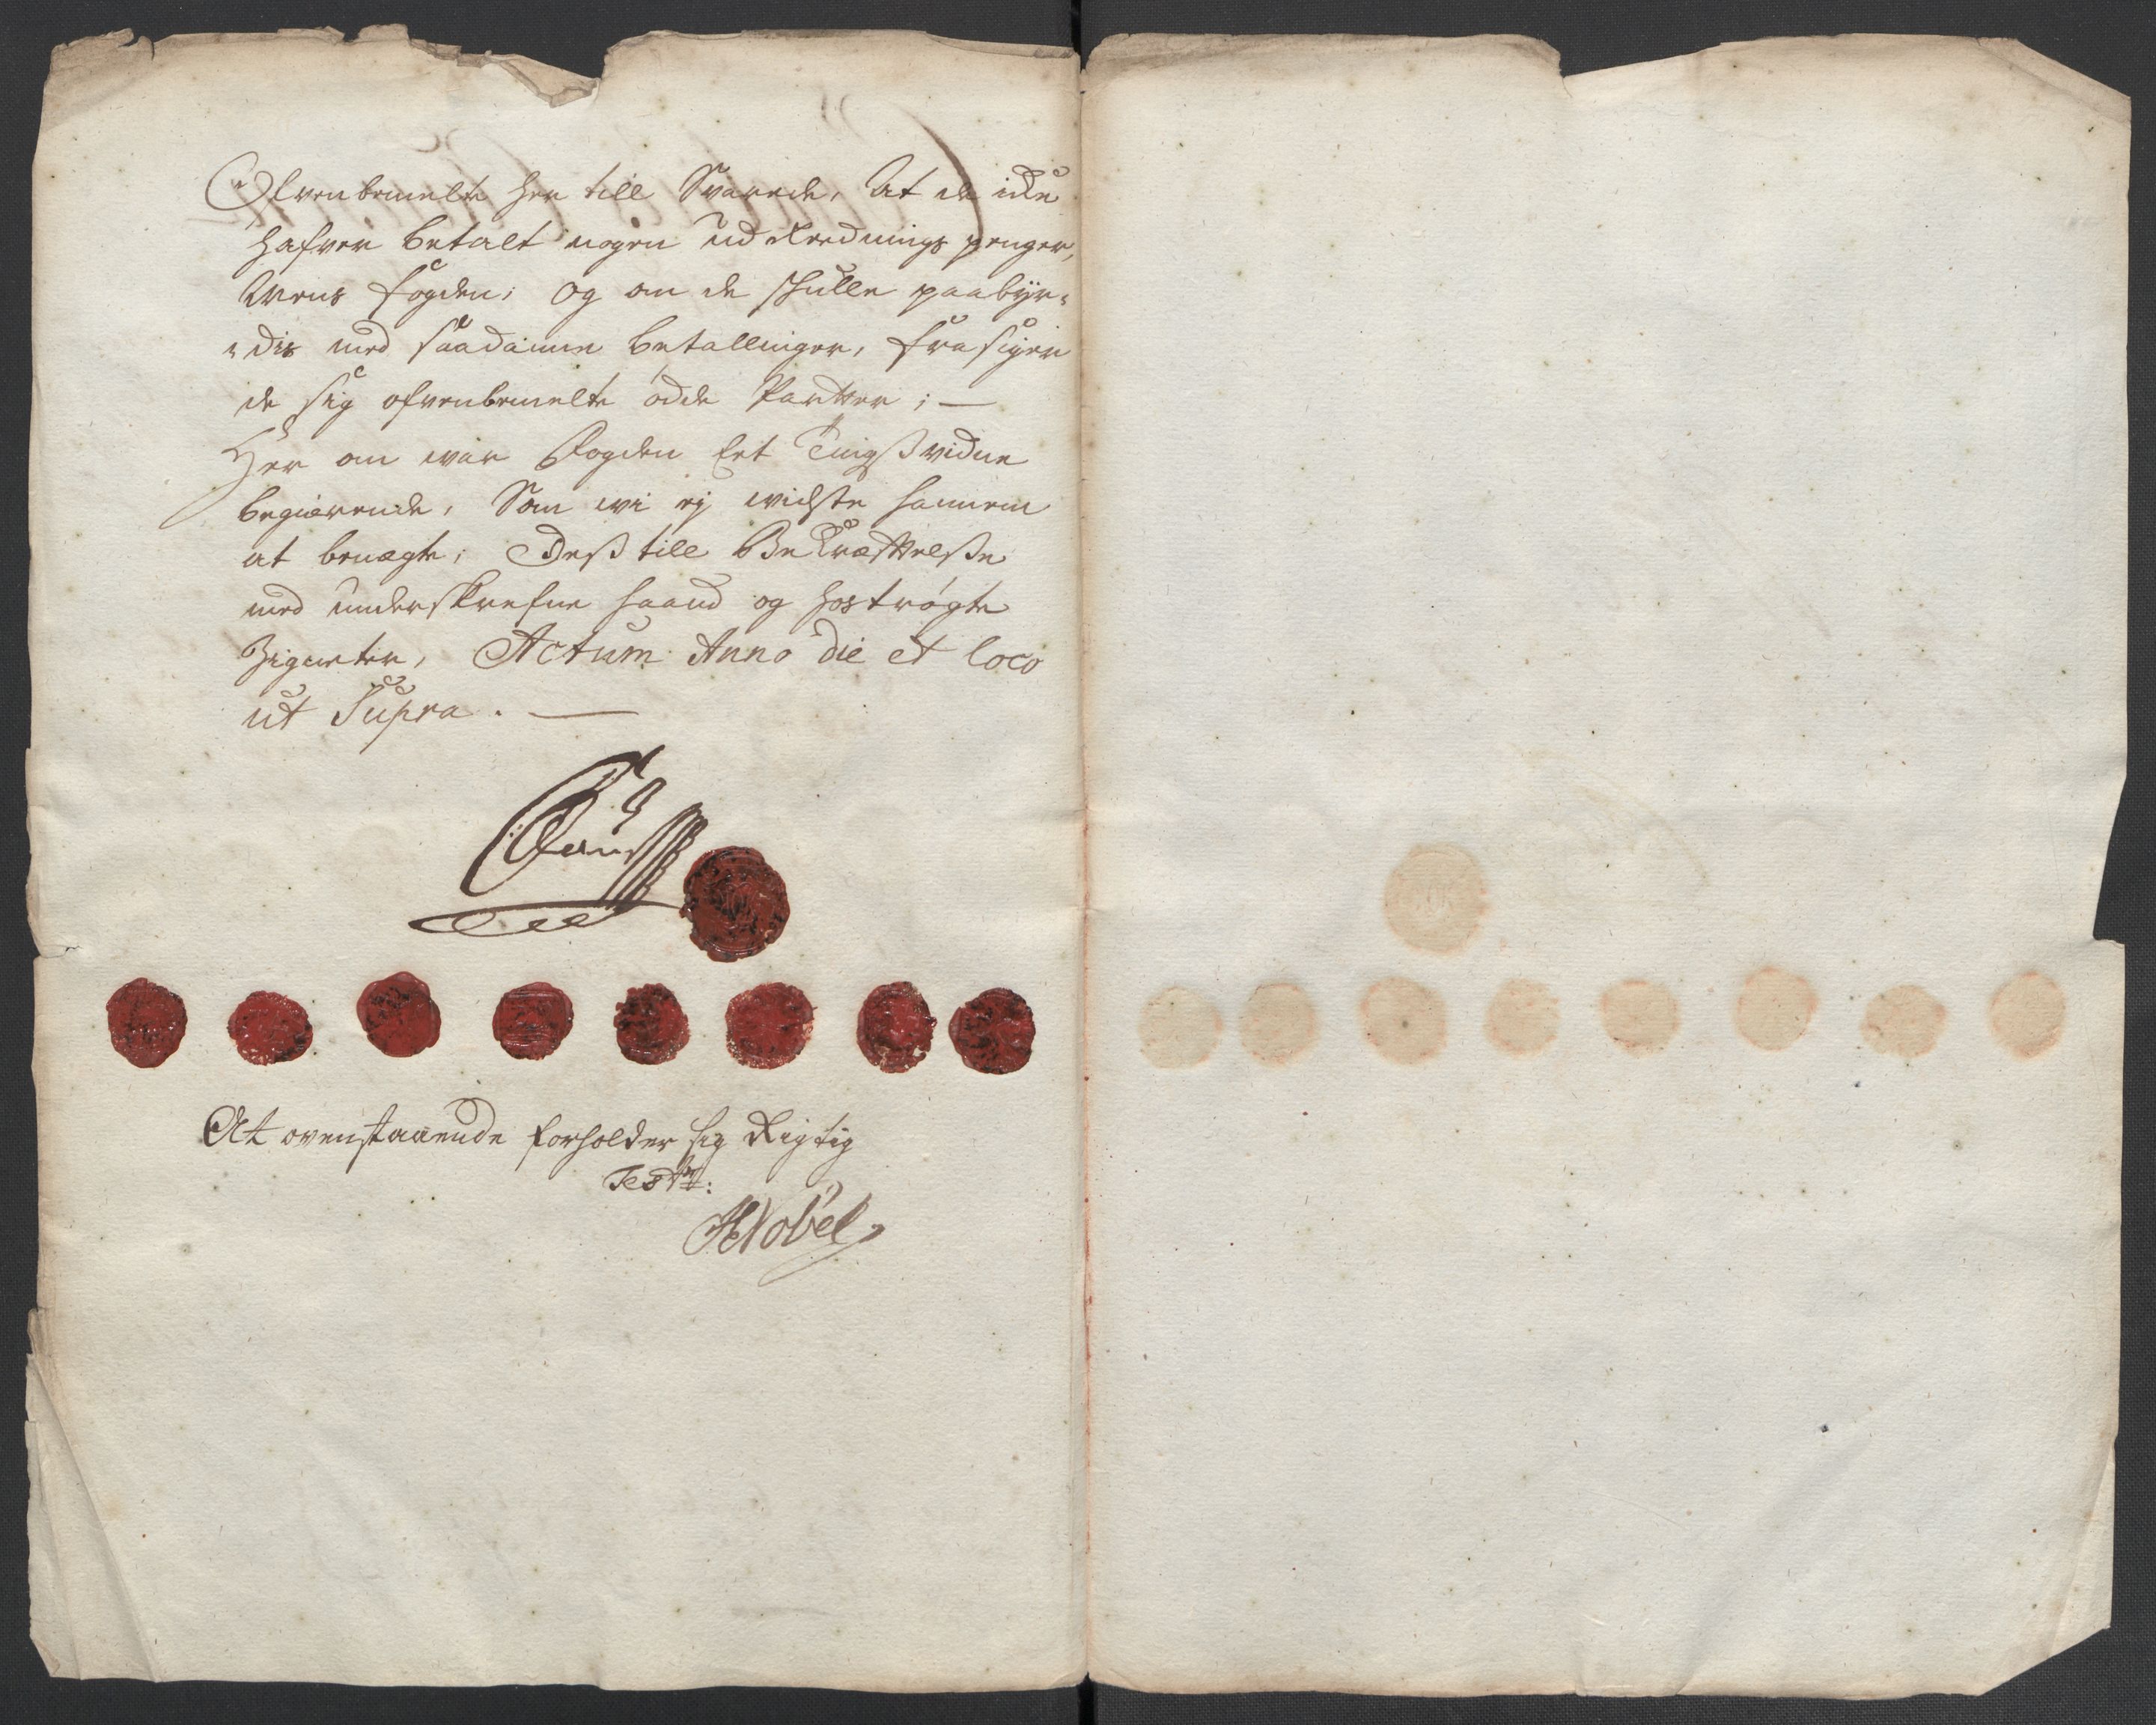 Ofvenbemelte her till Svarede, At de icke
hafver betalt nogen udreednings penger,
Mens fogden; og om de skulle paabyr-
-dis med saadanne betallinger, frasiger
de sig ofvenbemelte ödde Parter; —
Her om war Fogden Eet Tingßvidne
begiærende, Som wi ej widste hannem
at benægte; Deß till Bekræfftelße
med underskrefne haand og hoströgte
Zigneter, Actum Anno die et loco
ut Supra. —
At ovenstaaende forholder sig Rigtig
Test:
Nobel